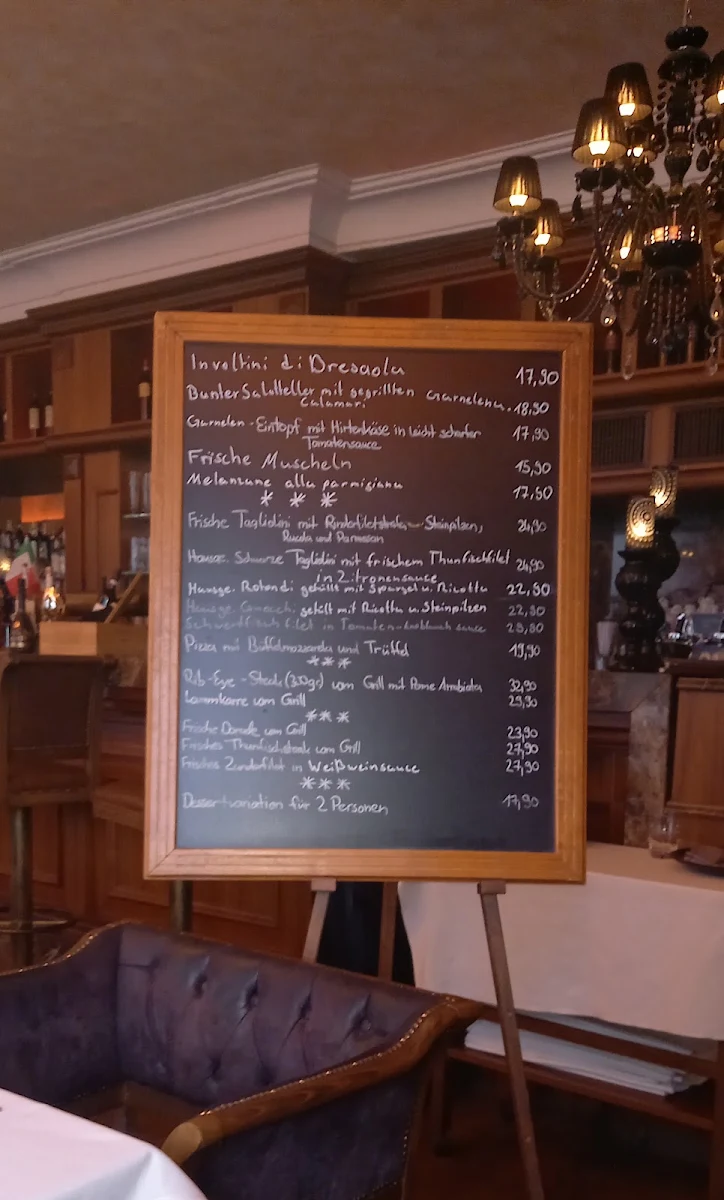 Involtini di Bresaola 17,90
Bunter Salatteller mit gegrillten Garnelen u. 18,90
Calamari
Garnelen-Eintopf mit Hirtenkäse in leicht scharfer 17,90
Tomatensauce
Frische Muscheln 15,90
Melanzane alla parmigiana 17,50
* * *
Frische Tagliolini mit Rinderfiletstreifen Steinpilzen, 24,90
Rucola und Parmesan
Hausge. Schwarze Tagliolini mit frischem Thunfischfilet 24,90
in Zitronensauce
Hausge. Rotondi gefüllt mit Spargel u. Ricotta 22,90
Hausge. gefüllt mit Ricotta u. Steinpilzen 22,90
Schwertfischfilet in Tomaten-Knoblauch sauce
Pizza mit Büffelmozzarella und Trüffel 19,90
* * *
Rib-Eye-Steak (300gr) vom Grill mit Pome Arrabiata 32,90
Lammkarre vom Grill 29,90
* * *
Frische Dorade vom Grill 23,90
Frisches Thunfischsteak vom Grill 27,90
Frisches Zanderfilet in Weißweinsauce 27,90
* * *
Dessertvariation für 2 Personen 17,90